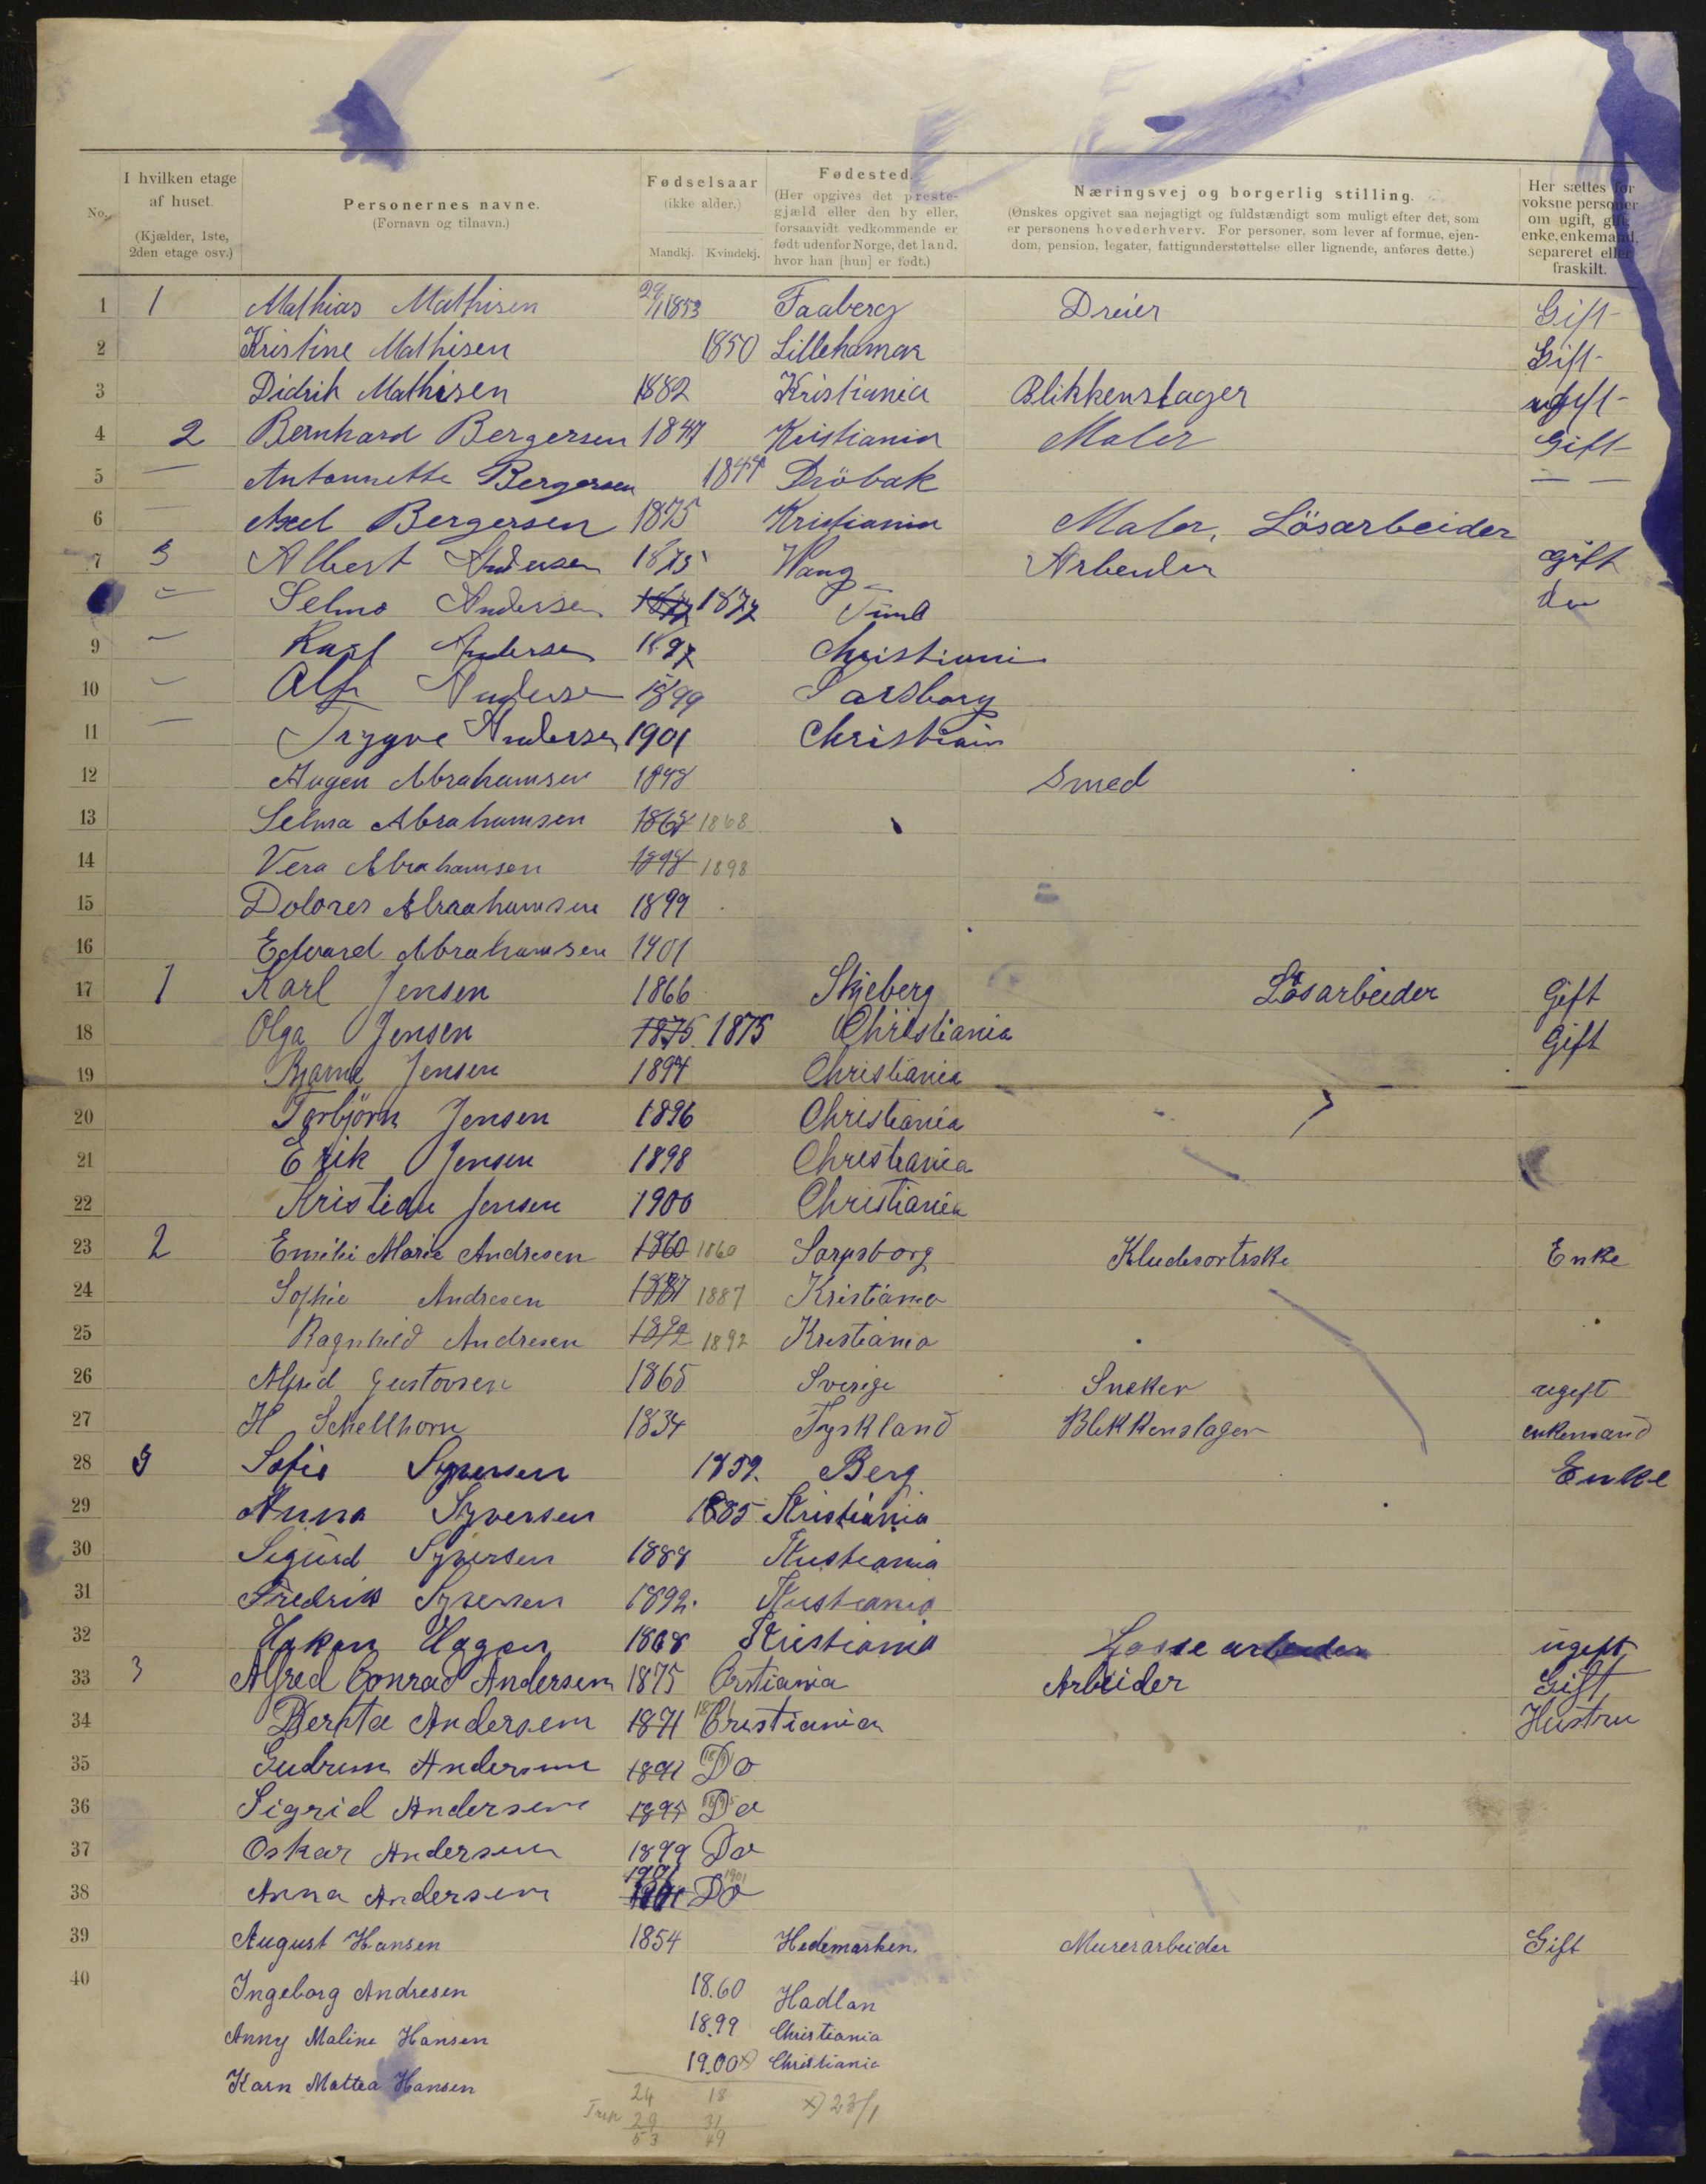 No.
I hvilken etage af huset. (Kjælder, 1ste, 2den etage osv.)
Personernes navne. (Fornavn og tilnavn.)
Fødselsaar (ikke alder.) Mandkj. Kvindekj.
Fødested. (Her opgives det prestegjæld eller den by eller, forsaavidt vedkommende er født udenfor Norge, det land, hvor han [hun] er født.)
Næringsvej og borgerlig stilling. (Ønskes opgivet saa nøjagtigt og fuldstændigt som muligt efter det, som er personens hovederhverv. For personer, som lever af formue, ejendom, pension, legater, fattigunderstøttelse eller lignende, anføres dette.)
Her sættes for voksne personer om ugift, gift, enke, enkemand, separeret eller fraskilt.
1 1 Mathias Mathisen 29/1 1853 Faaberg Dreier Gift
2 Kristine Mathisen 1850 Lillehamar Gift
3 Didrik Mathisen 1882 Kristiania Blikkenslager ugift
4 2 Bernhard Bergersen 1847 Kristiania Maler Gift
5 — Antonnette Bergersen 1844 Dröbak — —
6 — Axel Bergersen 1875 Kristiania Maler, Lösarbeider
7 3 Albert Andersen 1875 Vang Arbeider gift
— Selma Andersen 1877 1877 do
9 — Karl Andersen 1897 Christiani
10 — Alf Andersen 1899 Sarsborg
11 — Trygve Andersen 1901 Christiain
12 Augen Abrahamsen 1848 Smed
13 Selma Abrahamsen 1868 1868
14 Vera Abrahamsen 1898 1898
15 Dolores Abraahamsen 1899
16 Edvard Abrahamsen 1901
17 1 Karl Jensen 1866 Skjeberg Løsarbeider Gift
18 Olga Jensen 1875. 1875 Christiania Gift
19 Bjarne Jensen 1894 Christiania
20 Torbjörn Jensen 1896 Christiania
21 Erik Jensen 1898 Christiania
22 Kristian Jensen 1900 Christiania
23 2 Emilie Marie Andresen 1860 1860 Sarpsborg Kludesortrske Enke
24 Sophie Andresen 1887 1887 Kristiania
25 Ragnhild Andresen 1892 1892 Kristiania
26 Alfred Gustovsen 1865 Sverige Sneker ugift
27 H Schellhorn 1834 Tyskland Blikkenslager enkemand
28 3 Sofie Syversen 1859. Berg Enke
29 Anna Syversen 1885 Kristiania
30 Sigurd Syversen 1888 Kristiania
31 Fredrik Syversen 1892. Kristiania
32 Hakon Hagen 1868 Kristiania arbeider ugift
33 3 Alfred Conrad Andersen 1875 Crstiania Arbeider Gift
34 Berhta Andersen 1871 Cristiania Hustru
35 Gudrun Andersen 1891 Do
36 Sigrid Andersen 1895 Do
37 Oskar Andersen 1899 Do
38 Anna Andersen 1901 1901 Do
39 August Hansen 1854 Hedemarken. Murerarbeider Gift
40 Ingeborg Andresen 18.60 Hadlan
Anny Maline Hansen 18.99 Christiania
Karn Mattea Hansen 19.00 x) Christiania
24 18 x) 23/1
29 31
53 49